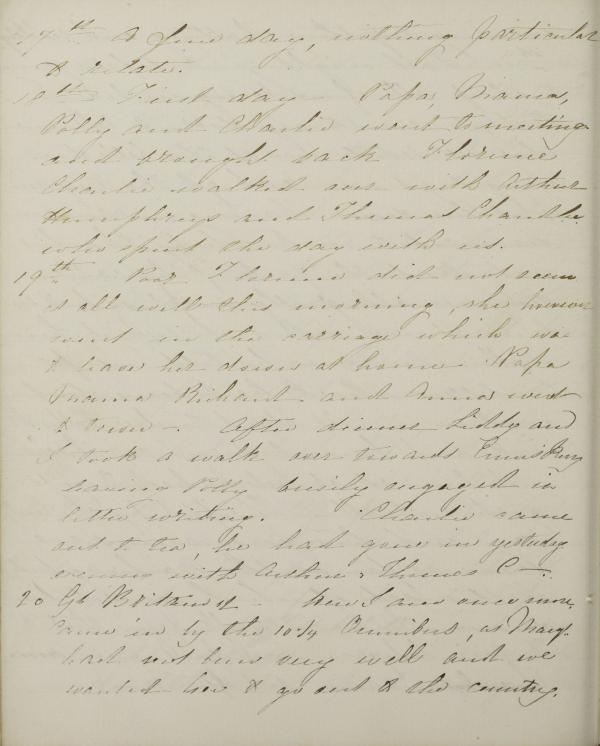 17th A fine day, nothing particular
to relate.
18th First day - Papa, Mama,
Polly and Charlie went to meeting
and brought back Florence
Charlie walked over with Arthur
Humphreys and Thomas Chandler
who spent the day with us.
19th Poor Florence did not seem
at all well this morning, she however
went in the carriage which was
to leave her down at home. Papa
Mama Richard and Anna went
to town -. After dinner Liddy and
I took a walk over towards
leaving Polly busily engaged in
letter writing. Charlie came
out to tea, he had gone in yesterday
evening with Arthur & Thomas C-.
20 Gt Britain St - Here I am once more,
Came in by the 10.14 Omnibus, as Mary
had not been very well and we
wanted her to go out to the country.